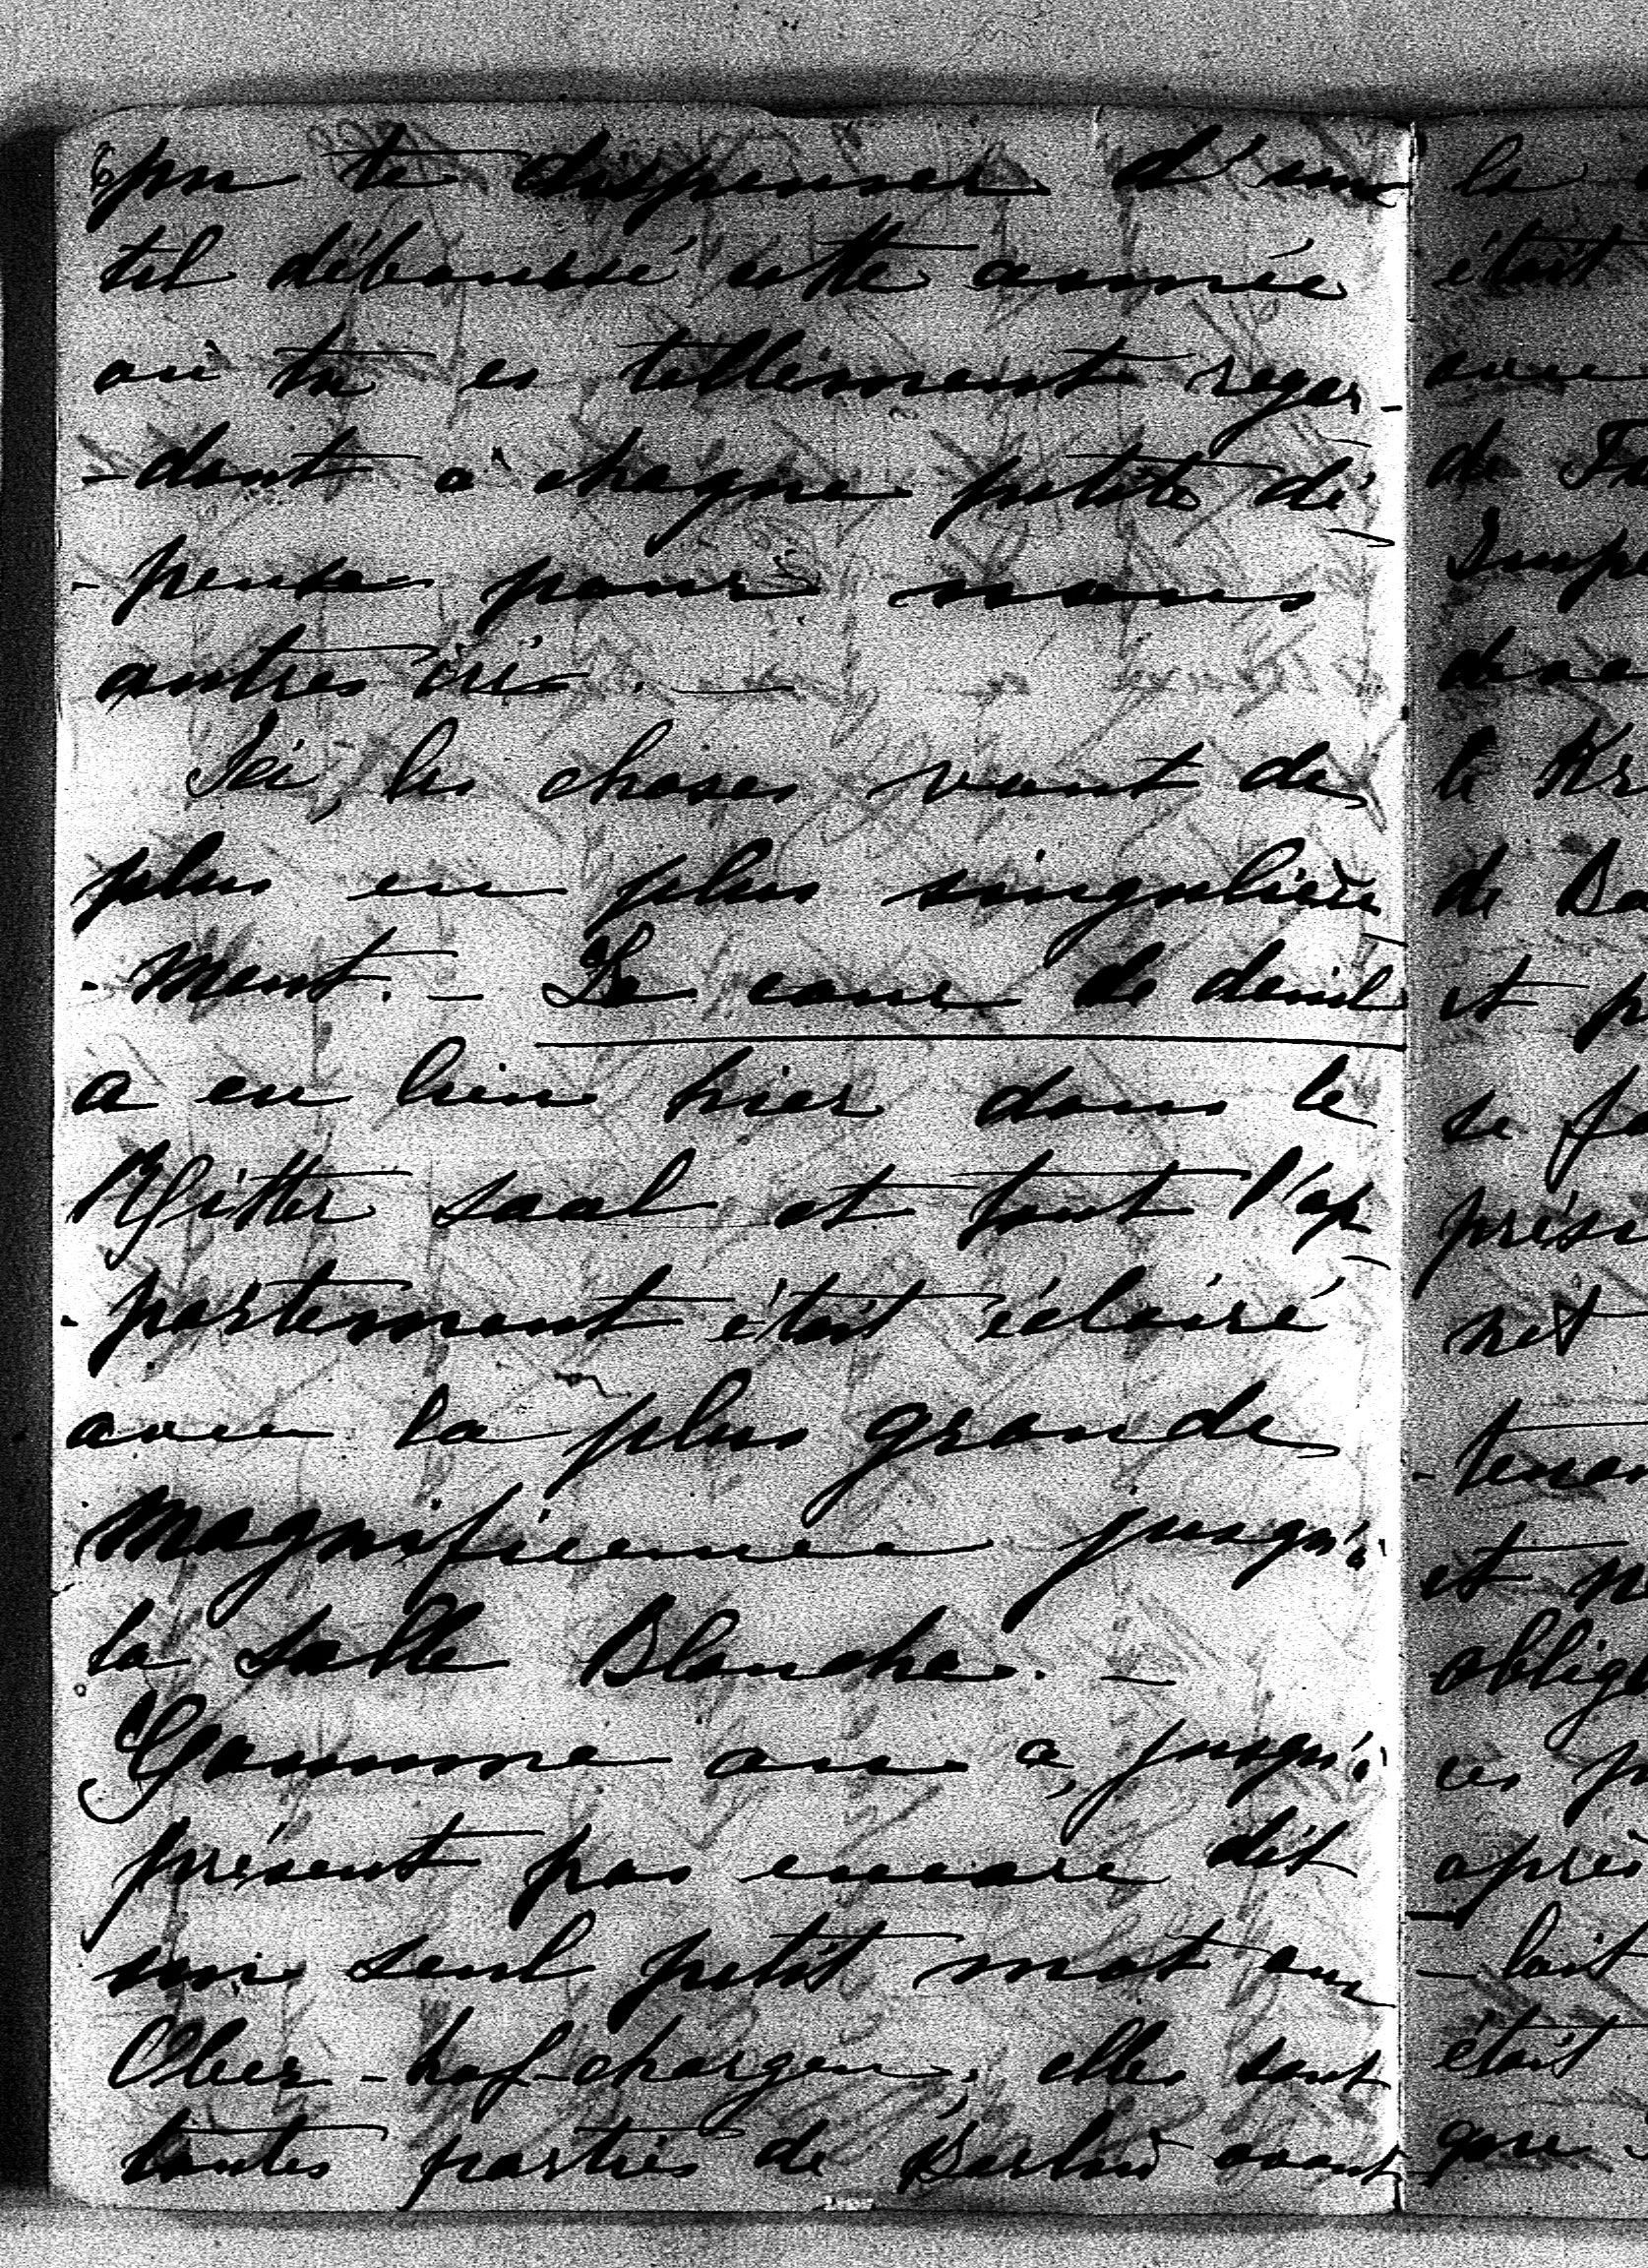 pu te dispenser d'un
tel déboursé cette année
où tu es tellement regar-
-dant à chaque petite dé-
-pense pour nous
autres ici. —
Ici, les choses vont de
plus en plus singulière-
-ment. — La cour de deuil
a eu lieu hier dans le
Ritter saal et tout l'ap-
-partement était éclairé
avec la plus grande
magnificence jusqu'à
la Salle Blanche. —
a, jusqu'à
présent pas encore dit
un seul petit mot aux
Ober-hof-chargen; elles sont
toutes parties de Berlin avant
la
était
avec
de
le
de
et
se
et
ces
après
était
gare